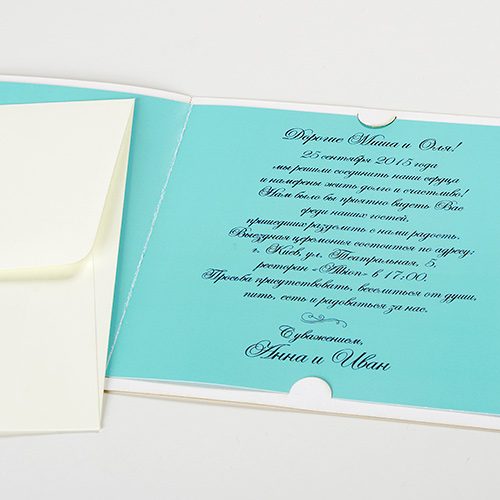 Дорогие Миша и Оля!
25 сентября 2015 года
мы решили соединить наши сердца
и намерены жить долго и счастливо!
Нам было бы приятно видеть Вас
среди наших гостей,
пришедших разделить с нами радость.
Выездная церемония состоится по адресу:
г. Киев, ул. Театральная, 5,
ресторан «Липск» в 17:00.
Просьба присутствовать, веселиться от души,
пить, есть и радоваться за нас.
С уважением,
Анна и Иван